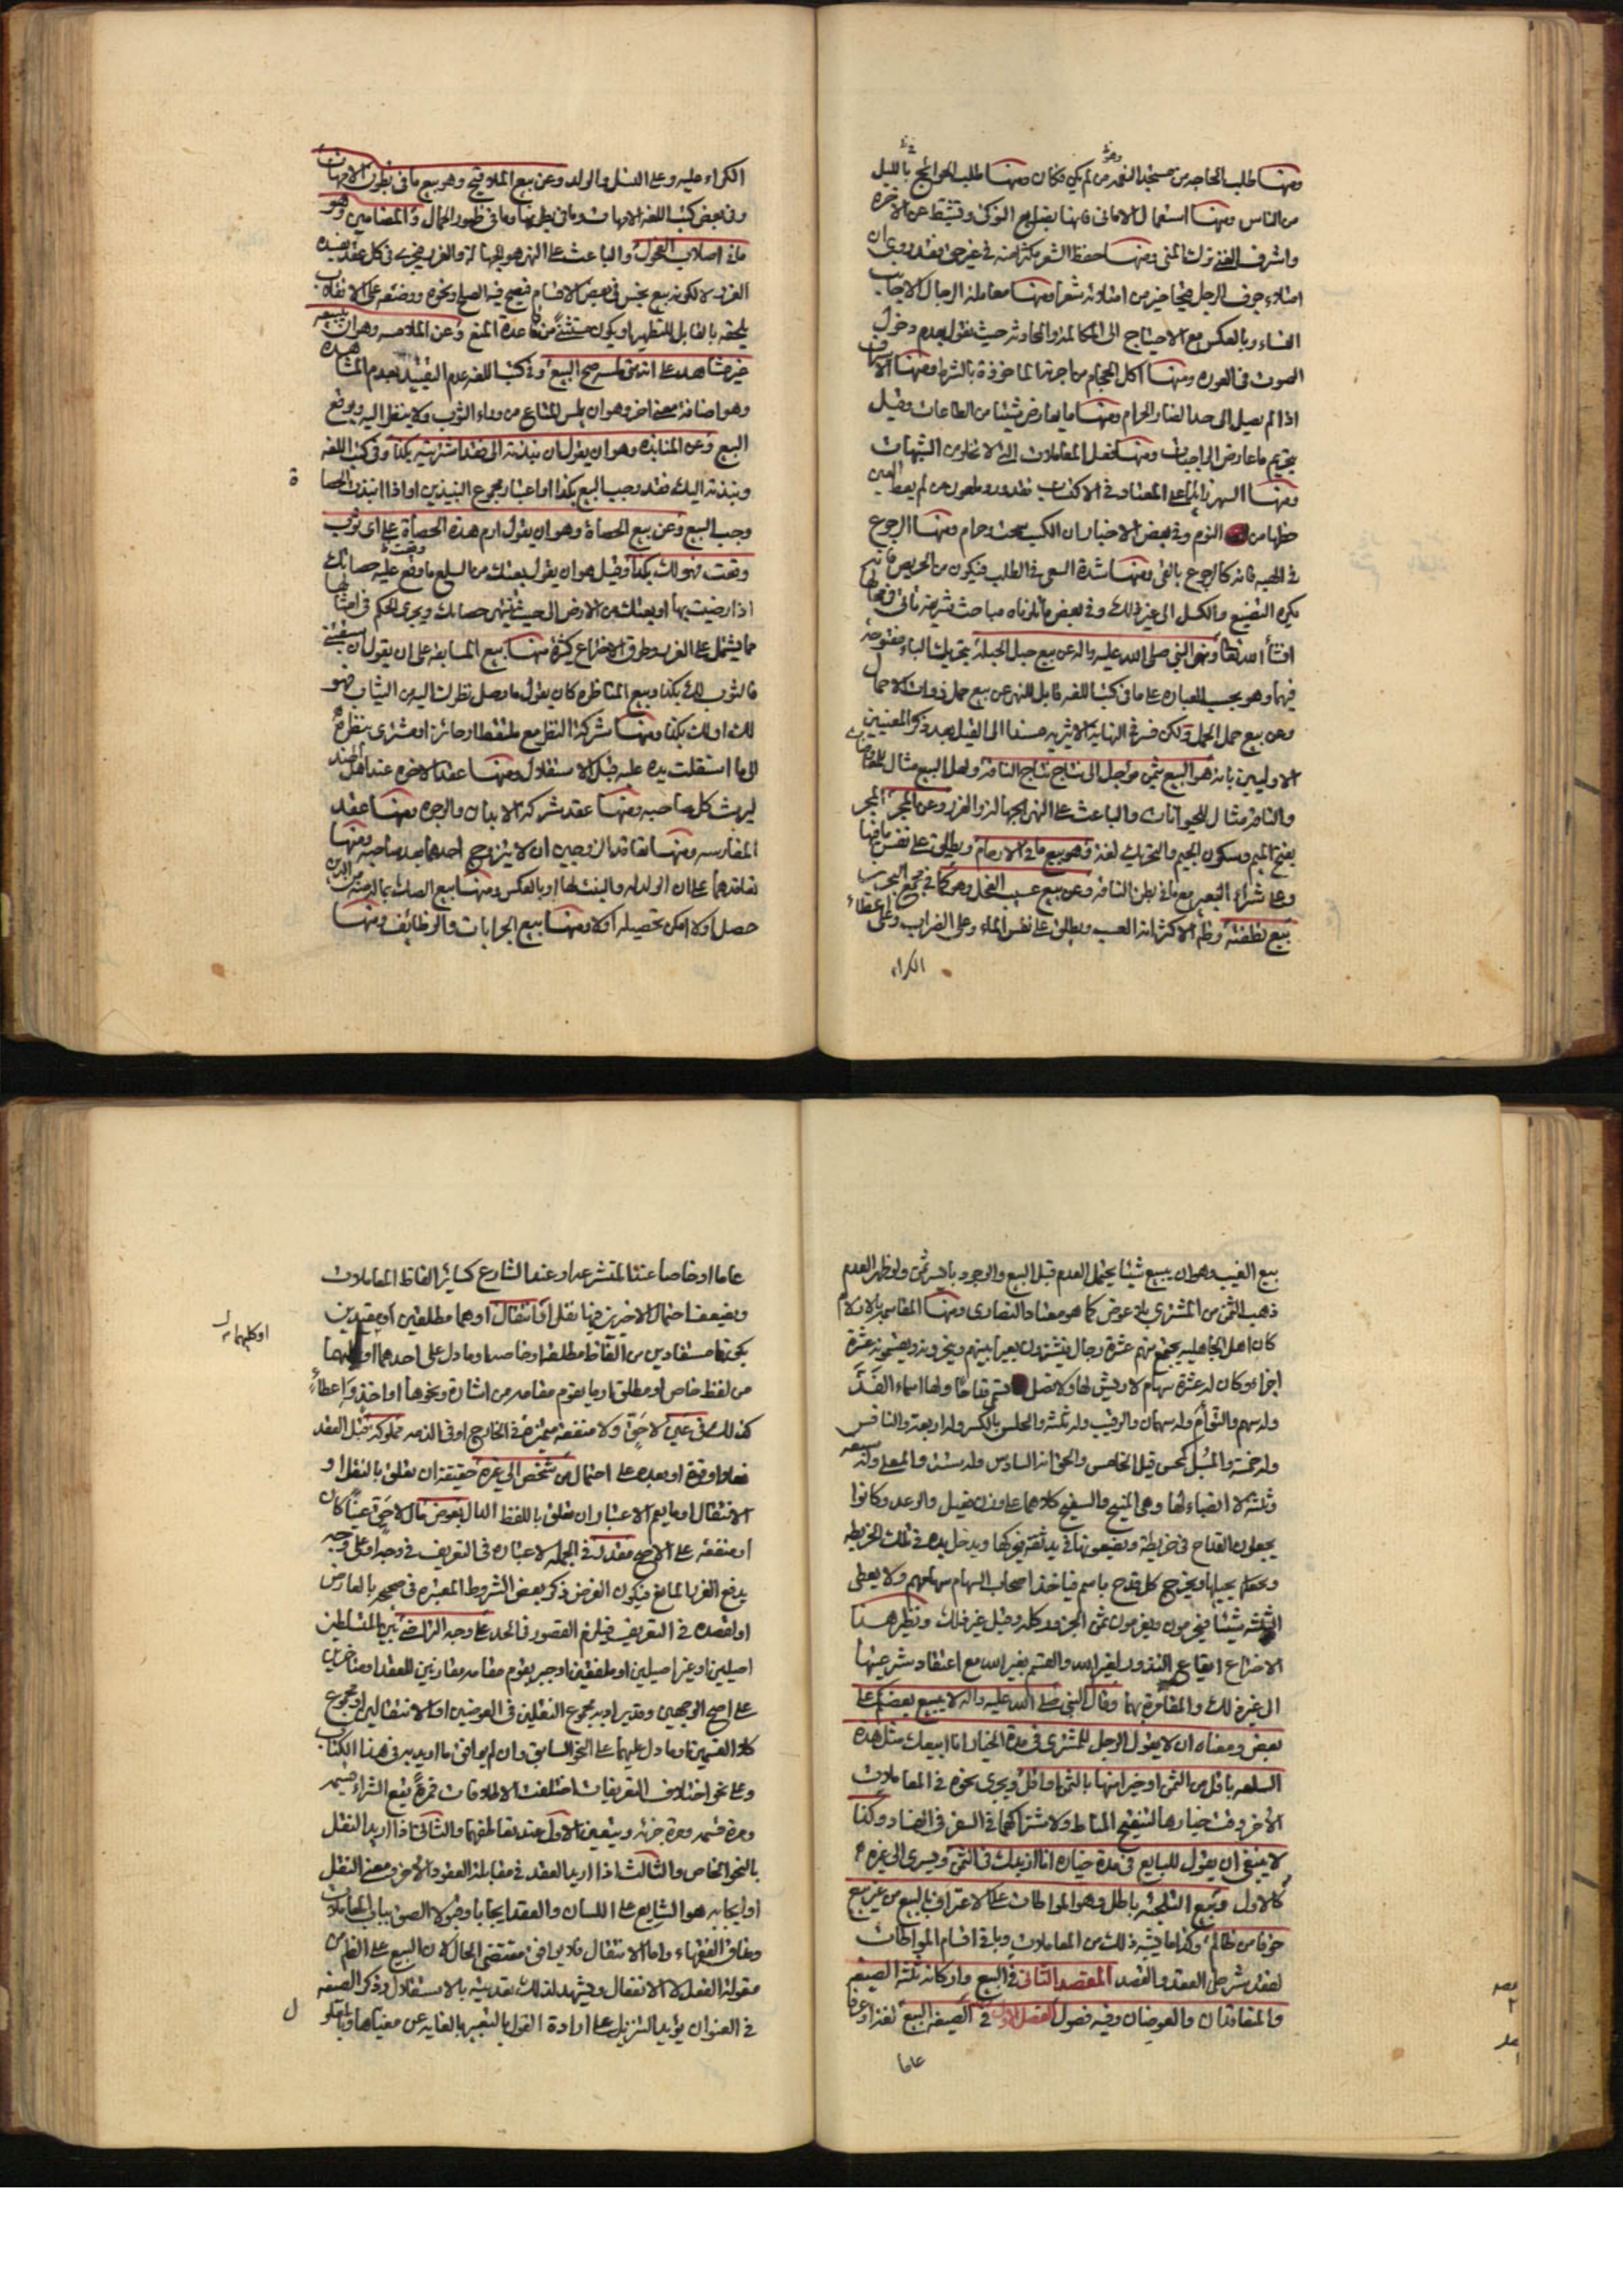 ومنها طلب الحاجه من مستجد النعمه من لم يكن فكان ومنها طلب الحوائج بالليل
من الناس ومنها استعمال الامانى فانها بضايع النوكى وتثبط عن الاخرة
واشرف الغنى ترك المنى ومنها حفظ الشعر بكثرة منه في غير حق فقد روى ان
امتلاء جوف الرجل قيحا خير من امتلائه شعرا ومنها معاملة الرجال الاجانب
النساء وبالعكس مع الاحتياج الى المكالمة والمحادثه حيث نقول بعدم دخول
الصوت في العوره ومنها اكل الحجام من اجرته الماخوذة بالشرط ومنها الاسراف
اذا لم يصل الى حد الفساد والحرام ومنها ما يعارض شيئا من الطاعات وقيل
بتحريم ما عارض الواجبات ومنها فعل المعاملات التي لا تخلو من الشبهات
ومنها السهر زائدا على المعتاد في الاكتساب فقد ورد ملعون من لم يعط العين
حظها من النوم وفي بعض الاخبار ان الكسب سحت وحرام ومنها الرجوع
في الهبه فانه كالرجوع بالقئ ومنها شدة السعى في الطلب فيكون من الحريص فانه
يكره التضييع والكسل الى غير ذلك وفي بعض ما ذكرناه مباحث شريفه تاتى في محلها
انشأ الله تعالى ونهى النبي صلى الله عليه واله عن بيع حبل الحبلة بتحريك الباء مفتوحة
فيهما وهو بحسب العباره على ما في كتب اللغه قابل للنهى عن بيع حمل ذوات الاحمال
وعن بيع حمل الحمل ولكن فسر في النهاية الاثيريه مسندا الى القيل بعد ذكر المعنيين
الاوليين بانه هو البيع بثمن مؤجل الى نتاج نتاج الناقة ولعل البيع مثال للمعاوضات
والناقة مثال للحيوانات والباعث على النهى الجهالة والغرر وعن المجر المجر
بفتح الميم وسكون الجيم والتحريك لغة وهو بيع ما في الارحام ويطلق على نفس ما فيها
وعلى شراء البعير مع ما في بطن الناقه وعن بيع عسب الفحل وهو كما في مجمع البحرين
بيع نطفته وظاهر الاكثر انه العسب ويطلق على نفس الماء وعلى الضراب وعلى اعطاء
الكراء
الكراء عليه وعلى النسل والولد وعن بيع الملاقيح وهو بيع ما في بطون الامهات
وفي بعض كتب اللغه الامهات وما في بطونها وما في ظهور الجمال والمضامين وهو
ما في اصلاب الفحول والباعث على النهى هو الجهالة والغرر فيجرى في كل عقد يفسده
الغرر لا لكونه بيع نجس في بعض الاقسام فيصح فيه الصلح ونحوه ووضعه على الانقلاب
يلحقه بالقابل للتطهير او يكون مستثنى من قاعدة المنع وعن الملامسه وهو ان يبيعه
غير مشاهد على انه متى لمسه صح البيع وفي كتب اللغه عدم التقييد بعدم المشاهده
وهو اضافة معنى اخر وهو ان يلمس المتاع من وراء الثوب ولا ينظر اليه ويوقع
البيع وعن المنابذه وهو ان يقول ان نبذته الى فقد اشتريته بكذا وفي كتب اللغه
ونبذته اليك فقد وجب البيع بكذا او اعتبار مجموع النبذين او اذا انبذت الحصاة
وجب البيع وعن بيع الحصاة وهو ان يقول ارم هذه الحصاة على اى ثوب
وقعت فهو لك بكذا وقيل هو ان يقول بعتك من السلع ما وقع عليه حصاتك
اذا رميت بها او بعتك من الارض الى حيث تنتهى حصاتك ويجرى الحكم في امثالها
مما يشتمل على الغرر وطرق الاختراع كثيرة منها بيع المسابقه على ان يقول ان سبقتنى
فالثوب لك بكذا وبيع المناظره كان يقول ما وصل نظرك اليه من الثياب فهو
لك او لك بكذا ومنها شركة النقل مع ملتقط او حائز او مشترى ينظر
الى ما استقلت يده عليه قبل الاستقلال ومنها عقد الاخوه عند اهل الهند
ليرث كل صاحبه ومنها عقد شركه الابدان والوجوه ومنها عقد
المغارسه ومنها تعاقد الزوجين ان لا يتزوج احدهما بعد صاحبه ومنها
تعاقدهما على ان الولد له والبنت لها او بالعكس ومنها بيع الصك بما فيه من الدين
حصل او لا امكن تحصيله او لا ومنها بيع الجرايات والوظائف ومنها
بيع الغيب وهو ان يبيع شيئا يحتمل العدم قبل البيع والوجود بايسر ثمن ولو ظهر العدم
ذهب الثمن من المشترى بلا عوض كما هو معتاد النصارى ومنها المقاسمه بالازلام
كان اهل الجاهليه يجتمع منهم عشرة رجال فيشترون بعيرا بينهم وينحرونه ويقسمونه عشرة
اجزاء وكان لهم عشرة سهام لا ريش لها ولا نصل تسمى قداحا ولها اسماء الفَذّ
وله سهم والتوأم وله سهمان والرقيب وله ثلثة والحلس بالكسر وله اربعة والنافس
وله خمسة والمسبل كمحسن قيل الخامس والحق انه السادس وله ستة والمعلى وله سبعه
وثلثة لا انصباء لها وهى المنيح والسفيح كلاهما على وزن فعيل والوغد وكانوا
يجعلون القداح في خريطة ويضعونها في يد ثقة فيحركها ويدخل يده في تلك الخريطه
ويخرج كل قدح باسم فيأخذ اصحاب السهام سهامهم ولا يعطى
الثلثه شيئا فيحرمون ويغرمون ثمن الجزور كله وقيل غير ذلك ونظير هذا
الاختراع ايقاع النذور لغير الله والقسم بغير الله مع اعتقاد شرعيتها
الى غير ذلك والمقامرة بهما وقال النبى صلى الله عليه واله لا يبيع بعضكم على
بعض ومعناه ان لا يقول الرجل للمشترى في مدة الخيار انا ابيعك مثل هذه
السلعه باقل من الثمن او خير منها بالثمن او اقل ويجرى نحوه في المعاملات
الأخر وقت خيارها لتنقيح المناط ولاشتراكهما في السر في الفساد وكذا
لا ينبغى ان يقول للبايع في مدة خياره انا ازيدك في الثمن ويسرى الى غيره
كالاول وبيع التلجئة باطل وهو المواطات على الاعتراف بالبيع من غير بيع
خوفا من ظالم وكذا ما يشبه ذلك من المعاملات وباقى اقسام المواطات
لفقد شرطى العقد والقصد المقصد الثاني في البيع واركانه ثلثة الصيغه
والمتعاقدان والعوضان وفيه فصول الفصل الاول في الصيغه البيع لغة او عرفا
عاما
عاما او خاصا عند المتشرعه او عند الشارع كسائر الفاظ المعاملات
ويضعف احتمال الاخيرين فيها نقل او انتقال او هما مطلقين او مقيدين
بكونهما مستفادين من الفاظ مطلقه او خاصه او ما دل على احدهما او كليهما
او كليهما
من لفظ خاص او مطلق او ما يقوم مقامه من اشارة ونحوها او اخذ واعطاء
كذلك في عين لا حق ولا منفعة متميزة في الخارج او في الذمه مملوكة قبل العقد
فعلا او قوة او بعده على احتمال من شخص الى غيره حقيقة ان تعلق بالنقل او
الانتقال او ما يعم الاعتبار ان تعلق باللفظ الدال بعوض مال لا حق عينا كان
او منفعه على الاصح مقدرة في الجمله لاعتباره في التعريف في وجه او على وجه
يدفع الغرر المانع فيكون الغرض ذكر بعض الشروط المعتبره في صحيحه بالعارض
او لقصده في التعريف فيلزم القصور في الحد على وجه التراضى بين المتسلطين
اصيلين او غير اصيلين او ملفقين او جبر يقوم مقامه مقارنين للعقد او متاخرين
على اصح الوجهين وقد يراد به مجموع النقلين في العوضين او الانتقالين او مجموع
كلا القسمين او ما دل عليهما على النحو السابق وان لم يوافق ما اريد به في هذا الكتاب
وعلى نحو اختلاف التعريفات اختلفت الاطلاقات فمرة يقع الشراء قسيمه
ومرة قسمه ومرة جزئه ويتعين الاول عند تقابلهما والثانى اذا اريد النقل
بالنحو الخاص والثالث اذا اريد العقد في مقابلة العقود الأخر ومعنى النقل
او ايجابه هو الشايع على اللسان والعقد ايجابا وقبولا الصق بباب المعاملات
ومذاق الفقهاء واما الانتقال فلا يوافق مقتضى الحال لان البيع على الظاهر من
مقولة الفعل لا الانفعال ويشهد لذلك تعديته بالاستقلال وذكر الصيغه
في العنوان يؤيد التنزيل على ارادة القول بالتعبير بالغايه عن مغياها